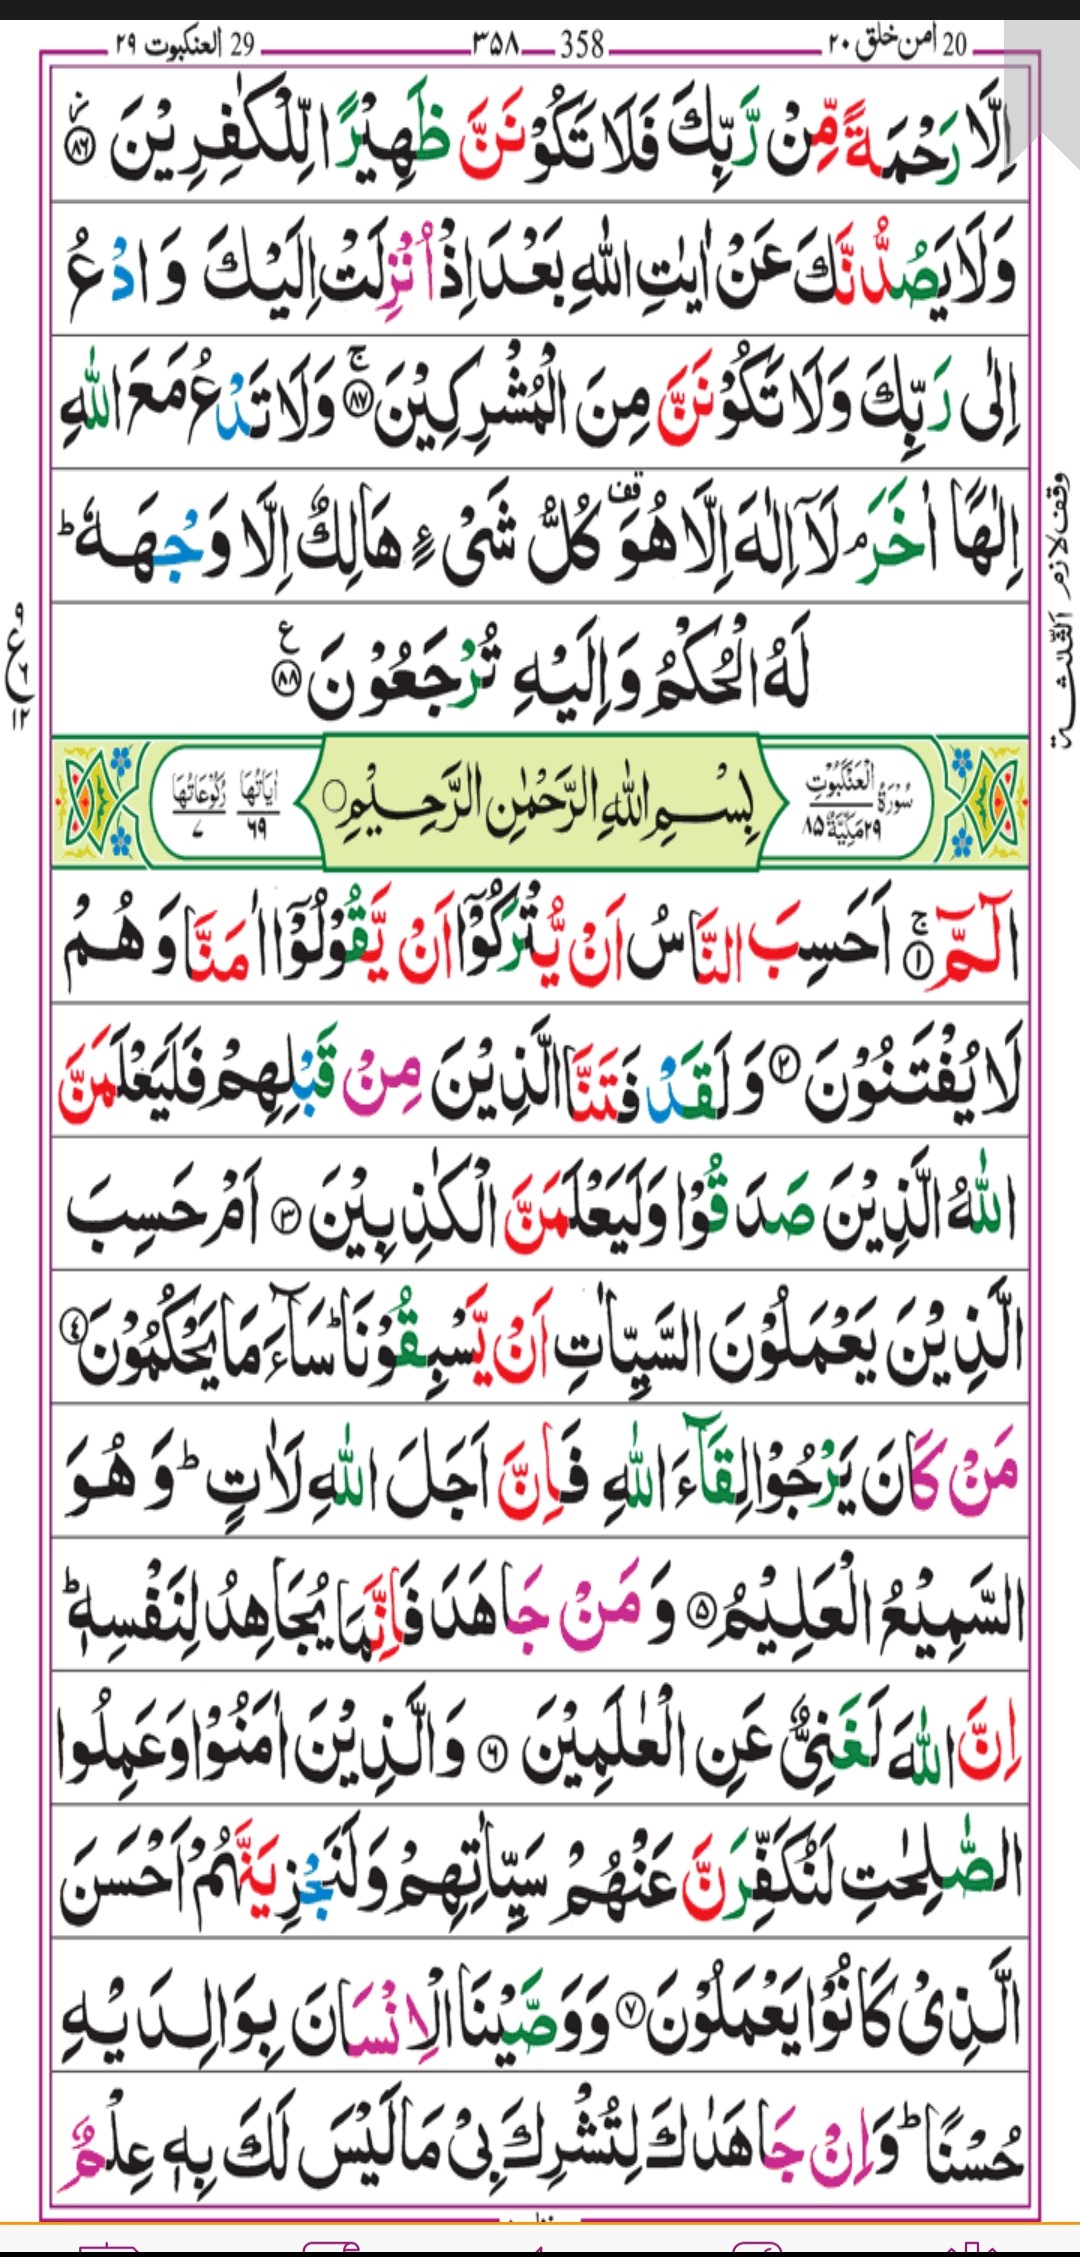 20 امن خلق ۲۰ 358 ۳۵۸ 29 العنکبوت ۲۹
اِلَّا رَحْمَةً مِّنْ رَّبِّكَ فَلَا تَكُوْنَنَّ ظَهِيْرًا لِّلْكٰفِرِيْنَ ۸۶
وَلَا يَصُدُّنَّكَ عَنْ اٰيٰتِ اللّٰهِ بَعْدَ اِذْ اُنْزِلَتْ اِلَيْكَ وَادْعُ
اِلٰى رَبِّكَ وَلَا تَكُوْنَنَّ مِنَ الْمُشْرِكِيْنَ ۚ ۸۷ وَلَا تَدْعُ مَعَ اللّٰهِ
اِلٰهًا اٰخَرَ ۘ لَاۤ اِلٰهَ اِلَّا هُوَ قف كُلُّ شَىْءٍ هَالِكٌ اِلَّا وَجْهَهٗ ؕ
لَهُ الْحُكْمُ وَاِلَيْهِ تُرْجَعُوْنَ ۸۸ ع
وقف لازم
الثلثة
ع ۹ ۱۲
سُوْرَةُ الْعَنْكَبُوْتِ ۲۹ مَكِّيَّةٌ ۸۵ بِسْمِ اللّٰهِ الرَّحْمٰنِ الرَّحِيْمِ اٰيَاتُهَا ۶۹ رُكُوْعَاتُهَا ۷
الٓمّٓ ۚ ۱ اَحَسِبَ النَّاسُ اَنْ يُّتْرَكُوْۤا اَنْ يَّقُوْلُوْۤا اٰمَنَّا وَهُمْ
لَا يُفْتَنُوْنَ ۲ وَلَقَدْ فَتَنَّا الَّذِيْنَ مِنْ قَبْلِهِمْ فَلَيَعْلَمَنَّ
اللّٰهُ الَّذِيْنَ صَدَقُوْا وَلَيَعْلَمَنَّ الْكٰذِبِيْنَ ۳ اَمْ حَسِبَ
الَّذِيْنَ يَعْمَلُوْنَ السَّيِّاٰتِ اَنْ يَّسْبِقُوْنَا ؕ سَآءَ مَا يَحْكُمُوْنَ ۴
مَنْ كَانَ يَرْجُوْا لِقَآءَ اللّٰهِ فَاِنَّ اَجَلَ اللّٰهِ لَاٰتٍ ؕ وَهُوَ
السَّمِيْعُ الْعَلِيْمُ ۵ وَمَنْ جَاهَدَ فَاِنَّمَا يُجَاهِدُ لِنَفْسِهٖ ؕ
اِنَّ اللّٰهَ لَغَنِىٌّ عَنِ الْعٰلَمِيْنَ ۶ وَالَّذِيْنَ اٰمَنُوْا وَعَمِلُوا
الصّٰلِحٰتِ لَنُكَفِّرَنَّ عَنْهُمْ سَيِّاٰتِهِمْ وَلَنَجْزِيَنَّهُمْ اَحْسَنَ
الَّذِىْ كَانُوْا يَعْمَلُوْنَ ۷ وَوَصَّيْنَا الْاِنْسَانَ بِوَالِدَيْهِ
حُسْنًا ؕ وَاِنْ جَاهَدٰكَ لِتُشْرِكَ بِىْ مَا لَيْسَ لَكَ بِهٖ عِلْمٌ